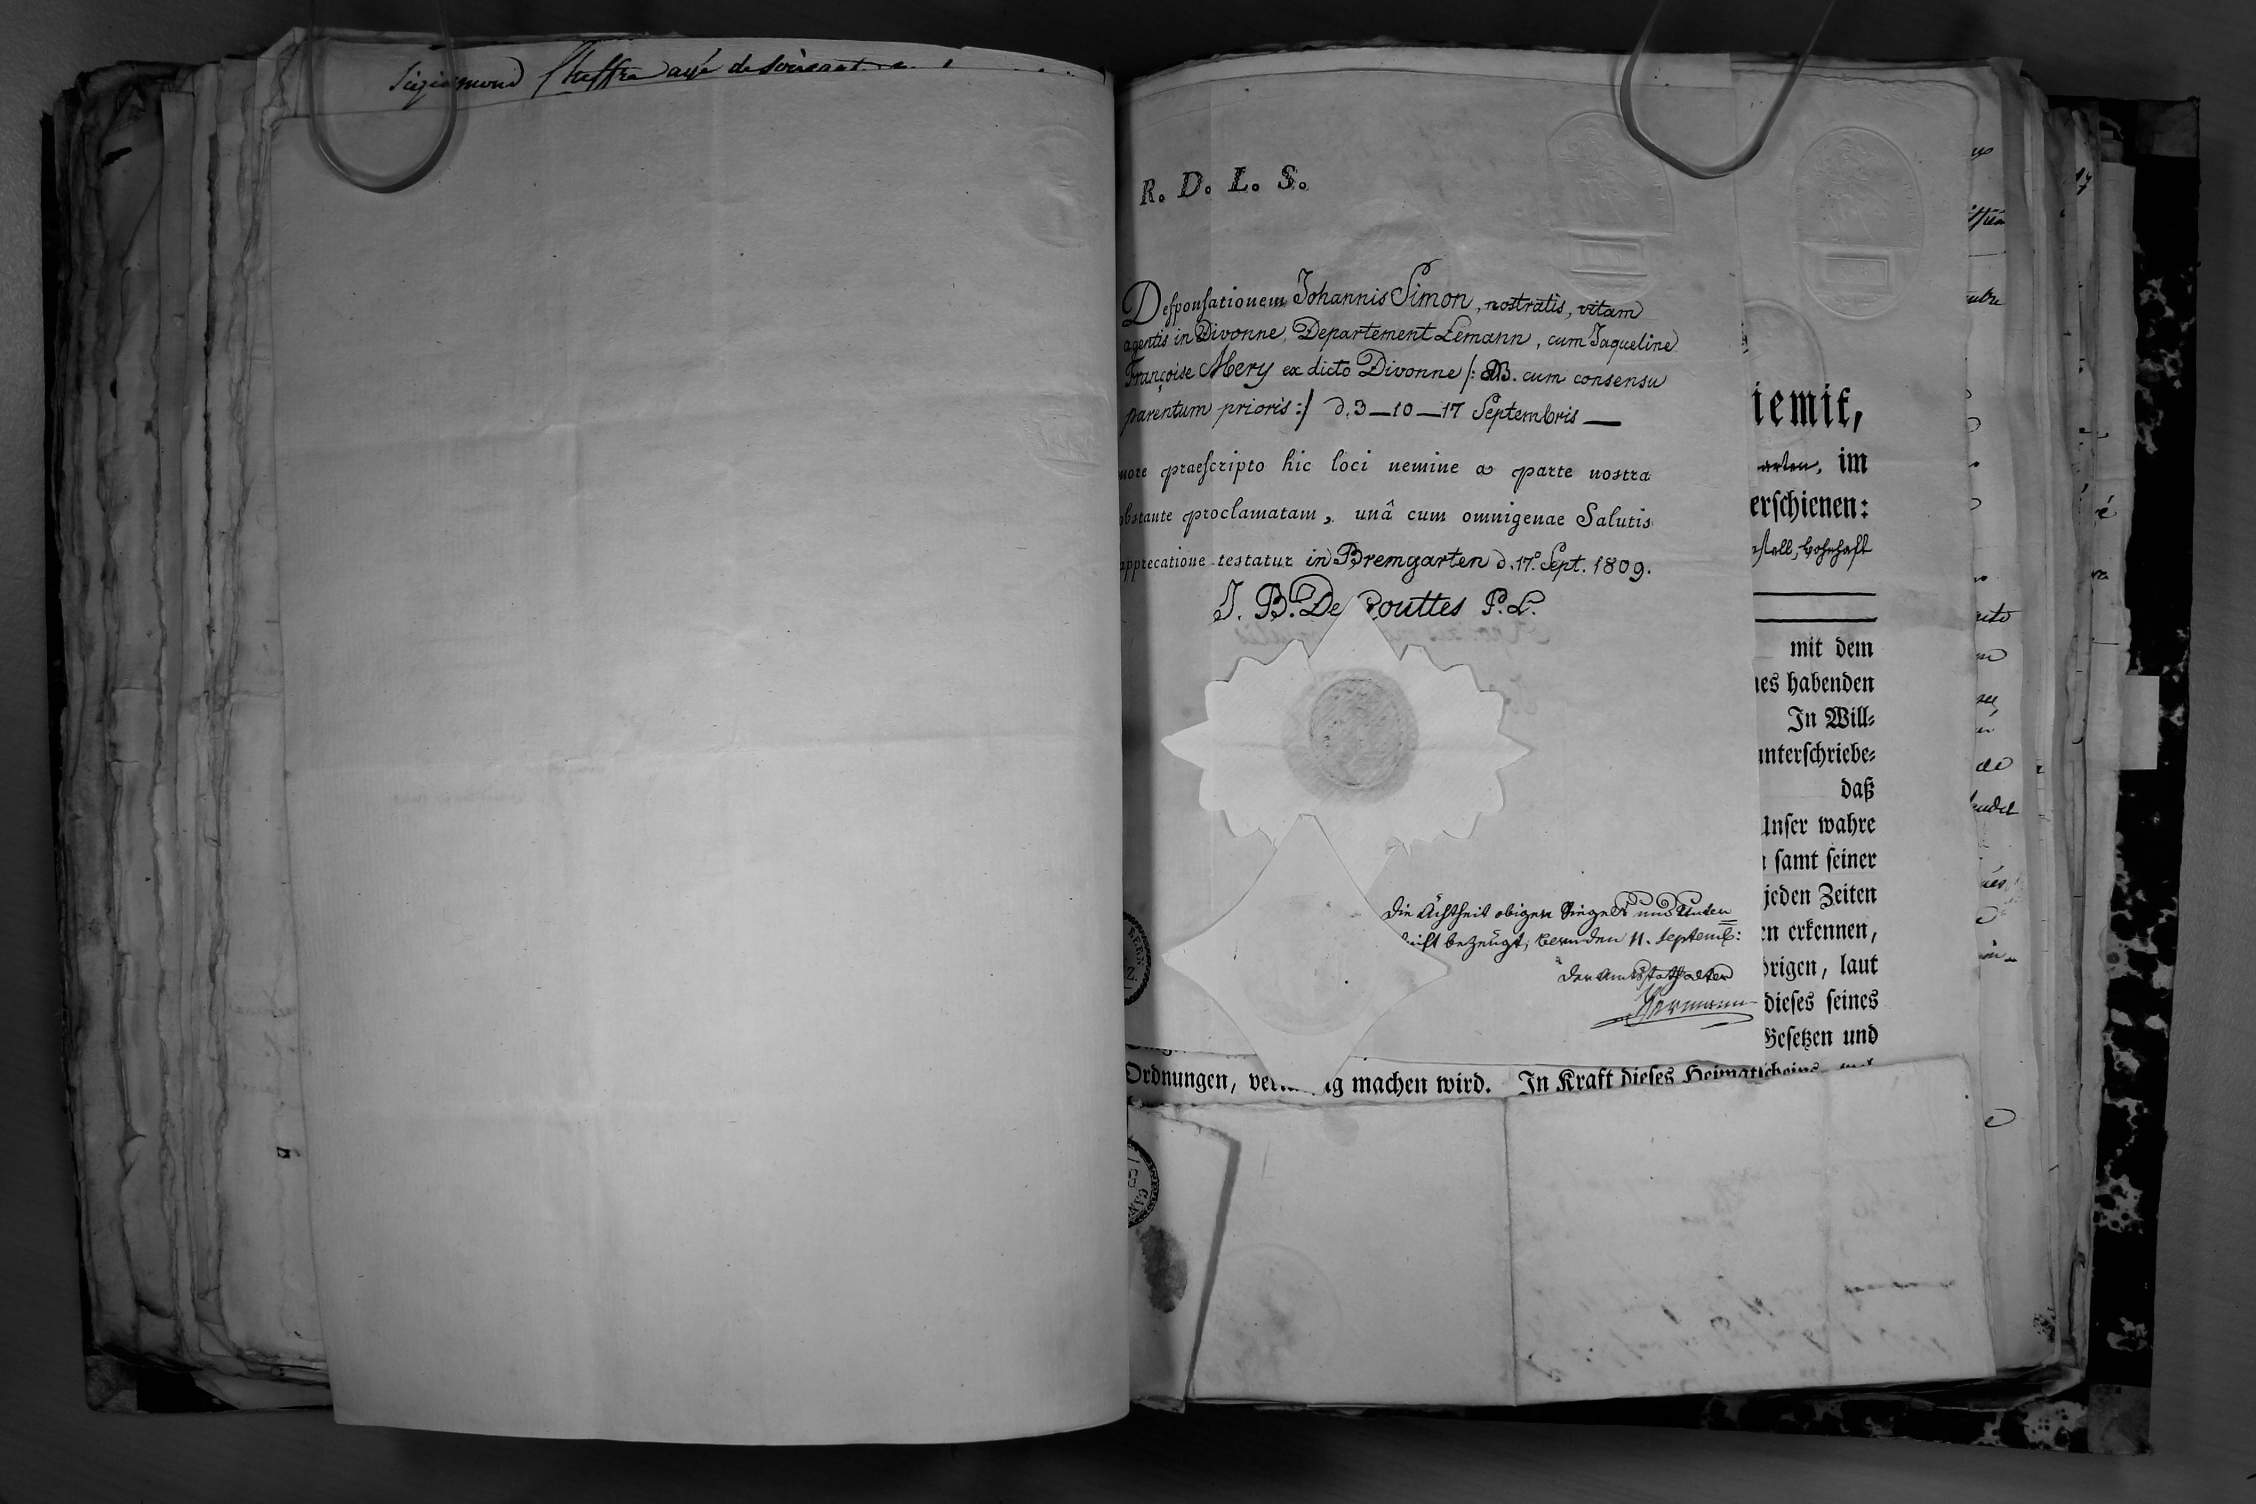 Sigismond Cheffre agé de soixante
R. D. L. S.
Desponsationem Johannis Simon, nostratis, vitam
agentis in Divonne, Departement Lemann, cum Jaqueline
Françoise Mery ex dicto Divonne /: NB. cum consensu
parentum prioris :/ d. 3 — 10 — 17 Septembris —
more praescripto hic loci nemine a parte nostra
obstante proclamatam, unâ cum omnigenae Salutis
apprecatione testatur in Bremgarten d. 17.º Sept. 1809.
J. B. De Gouttes P. L.
Die Ächtheit obigen Siegels und Unter=
schrift bezeugt, Bern den 11. Septemb:
Der Amtsstatthalter
Hermann
iemit,
arten, im
erschienen:
wohnhaft
mit dem
nes habenden
In Will=
unterschriebe=
daß
Unser wahre
samt seiner
jeden Zeiten
en erkennen,
örigen, laut
dieses seines
Gesetzen und
Ordnungen, machen wird. In Kraft dieses Heimatscheins
BERN